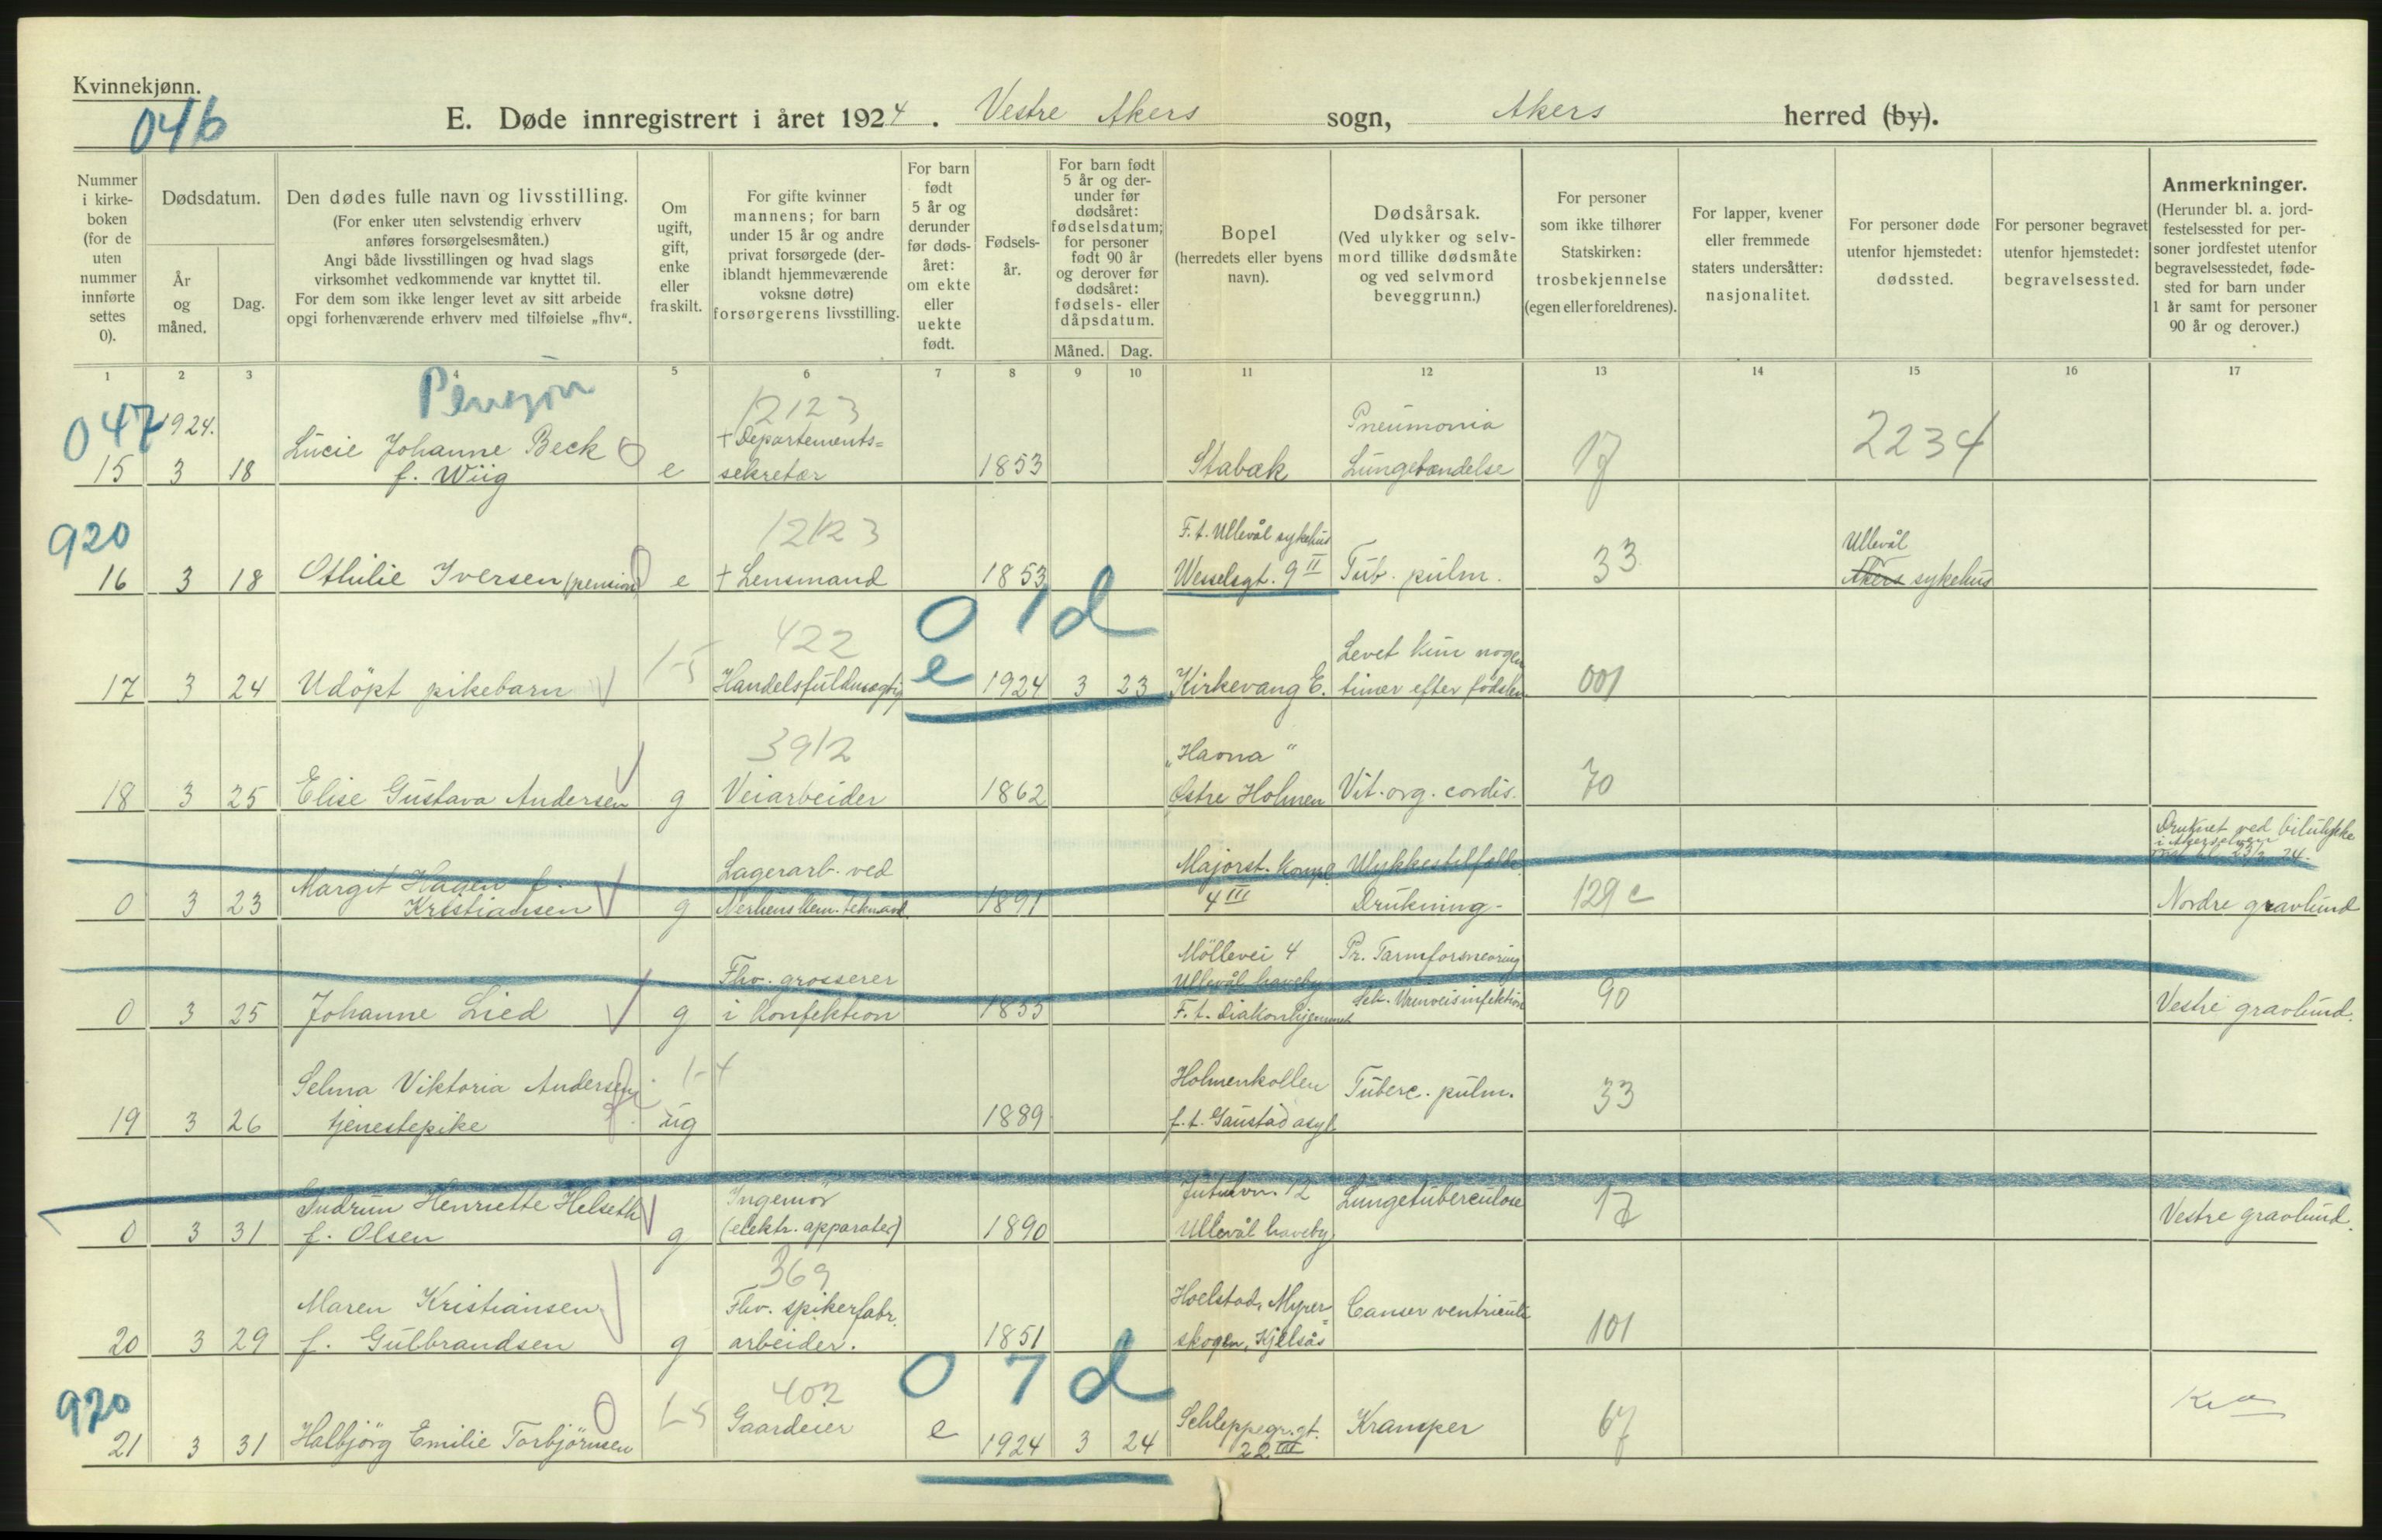 Kvinnekjønn.
04b
E. Døde innregistrert i året 1924. Vestre Akers sogn, Akers herred (by).
Nummer i kirke-boken (for de uten nummer innførte settes 0).
Dødsdatum.
År og måned.
Dag.
Den dødes fulle navn og livsstilling.
(For enker uten selvstendig erhverv anføres forsørgelsesmåten.)
Angi både livsstillingen og hvad slags virksomhet vedkommende var knyttet til.
For dem som ikke lenger levet av sitt arbeide opgi forhenværende erhverv med tilføielse „fhv“.
Om ugift, gift, enke eller fraskilt.
For gifte kvinner mannens; for barn under 15 år og andre privat forsørgede (der-iblandt hjemmeværende voksne døtre) forsørgerens livsstilling.
For barn født 5 år og derunder før døds-året: om ekte eller uekte født.
Fødsels-år.
For barn født 5 år og der-under før dødsåret: fødselsdatum; for personer født 90 år og derover før dødsåret: fødsels- eller dåpsdatum.
Måned. Dag.
Bopel
(herredets eller byens navn).
Dødsårsak.
(Ved ulykker og selv-mord tillike dødsmåte og ved selvmord beveggrunn.)
For personer som ikke tilhører Statskirken: trosbekjennelse (egen eller foreldrenes).
For lapper, kvener eller fremmede staters undersåtter: nasjonalitet.
For personer døde utenfor hjemstedet: dødssted.
For personer begravet utenfor hjemstedet: begravelsessted.
Anmerkninger.
(Herunder bl. a. jord-festelsessted for per-soner jordfestet utenfor begravelsesstedet, føde-sted for barn under 1 år samt for personer 90 år og derover.)
1 2 3 4 5 6 7 8 9 10 11 12 13 14 15 16 17
Pensjon
047 1924. 12123 Pneumonia
Lucie Johanne Beck + Departements= 2234
15 3 18 f. Wiig e sekretær 1853 Stabæk Lungebændelse 17
920 12123 F. t. Ullevål sykehus Ullevål
16 3 18 Othilie Iversen (pension) e + Lensmand 1853 Wesselsgt. 9 II Tub. pulm. 33 Akers sykehus
0 1 d
1-5 422 Levet kun nogen
17 3 24 Udöpt pikebarn Handelsfuldmægtig e 1924 3 23 Kirkevang E. timer efter fødslen. 001
3912 „Havna“
18 3 25 Elise Gustava Andersen g Veiarbeider 1862 Østre Holmen Vit. org. cordis. 70
Druknet ved bilulykke
i Akerselven
Margit Hagen f. Lagerarb. ved Majorst. Kompl. Ulykkestilfælde 23/3 24.
0 3 23 Kristiansen g 1891 4 III Drukning - 129 c Nordre gravlund
Möllevei 4 Pr. Tarmforsnevring
Fhv. grosserer Ullevål haveby
0 3 25 Johanne Lied g i konfektion 1855 F. t. Diakonhjemmet Sek. Urinveisinfektion 90 Vestre gravlund.
Selma Viktoria Andersen 1-4 Holmenkollen Tuberc. pulm.
19 3 26 tjenestepike ug 1889 f. t. Gaustad asyl 33
Gudrun Henriette Helseth Ingeniör 12 Lungetuberculose
0 3 31 f. Olsen g (elektr. apparater) 1890 Ullevål haveby 17 Vestre gravlund.
369
Maren Kristiansen Fhv. spikerfabr. Hoelstad, Myrer= Canser ventriculi
20 3 29 f. Gulbrandsen g arbeider. 1851 skogen, Kjelsås 101
0 7 d
920 1-5 402
21 3 31 Halbjörg Emilie Torbjörnsen Gaardeier e 1924 3 24 Schleppegr.gt. 22 III Kramper 67